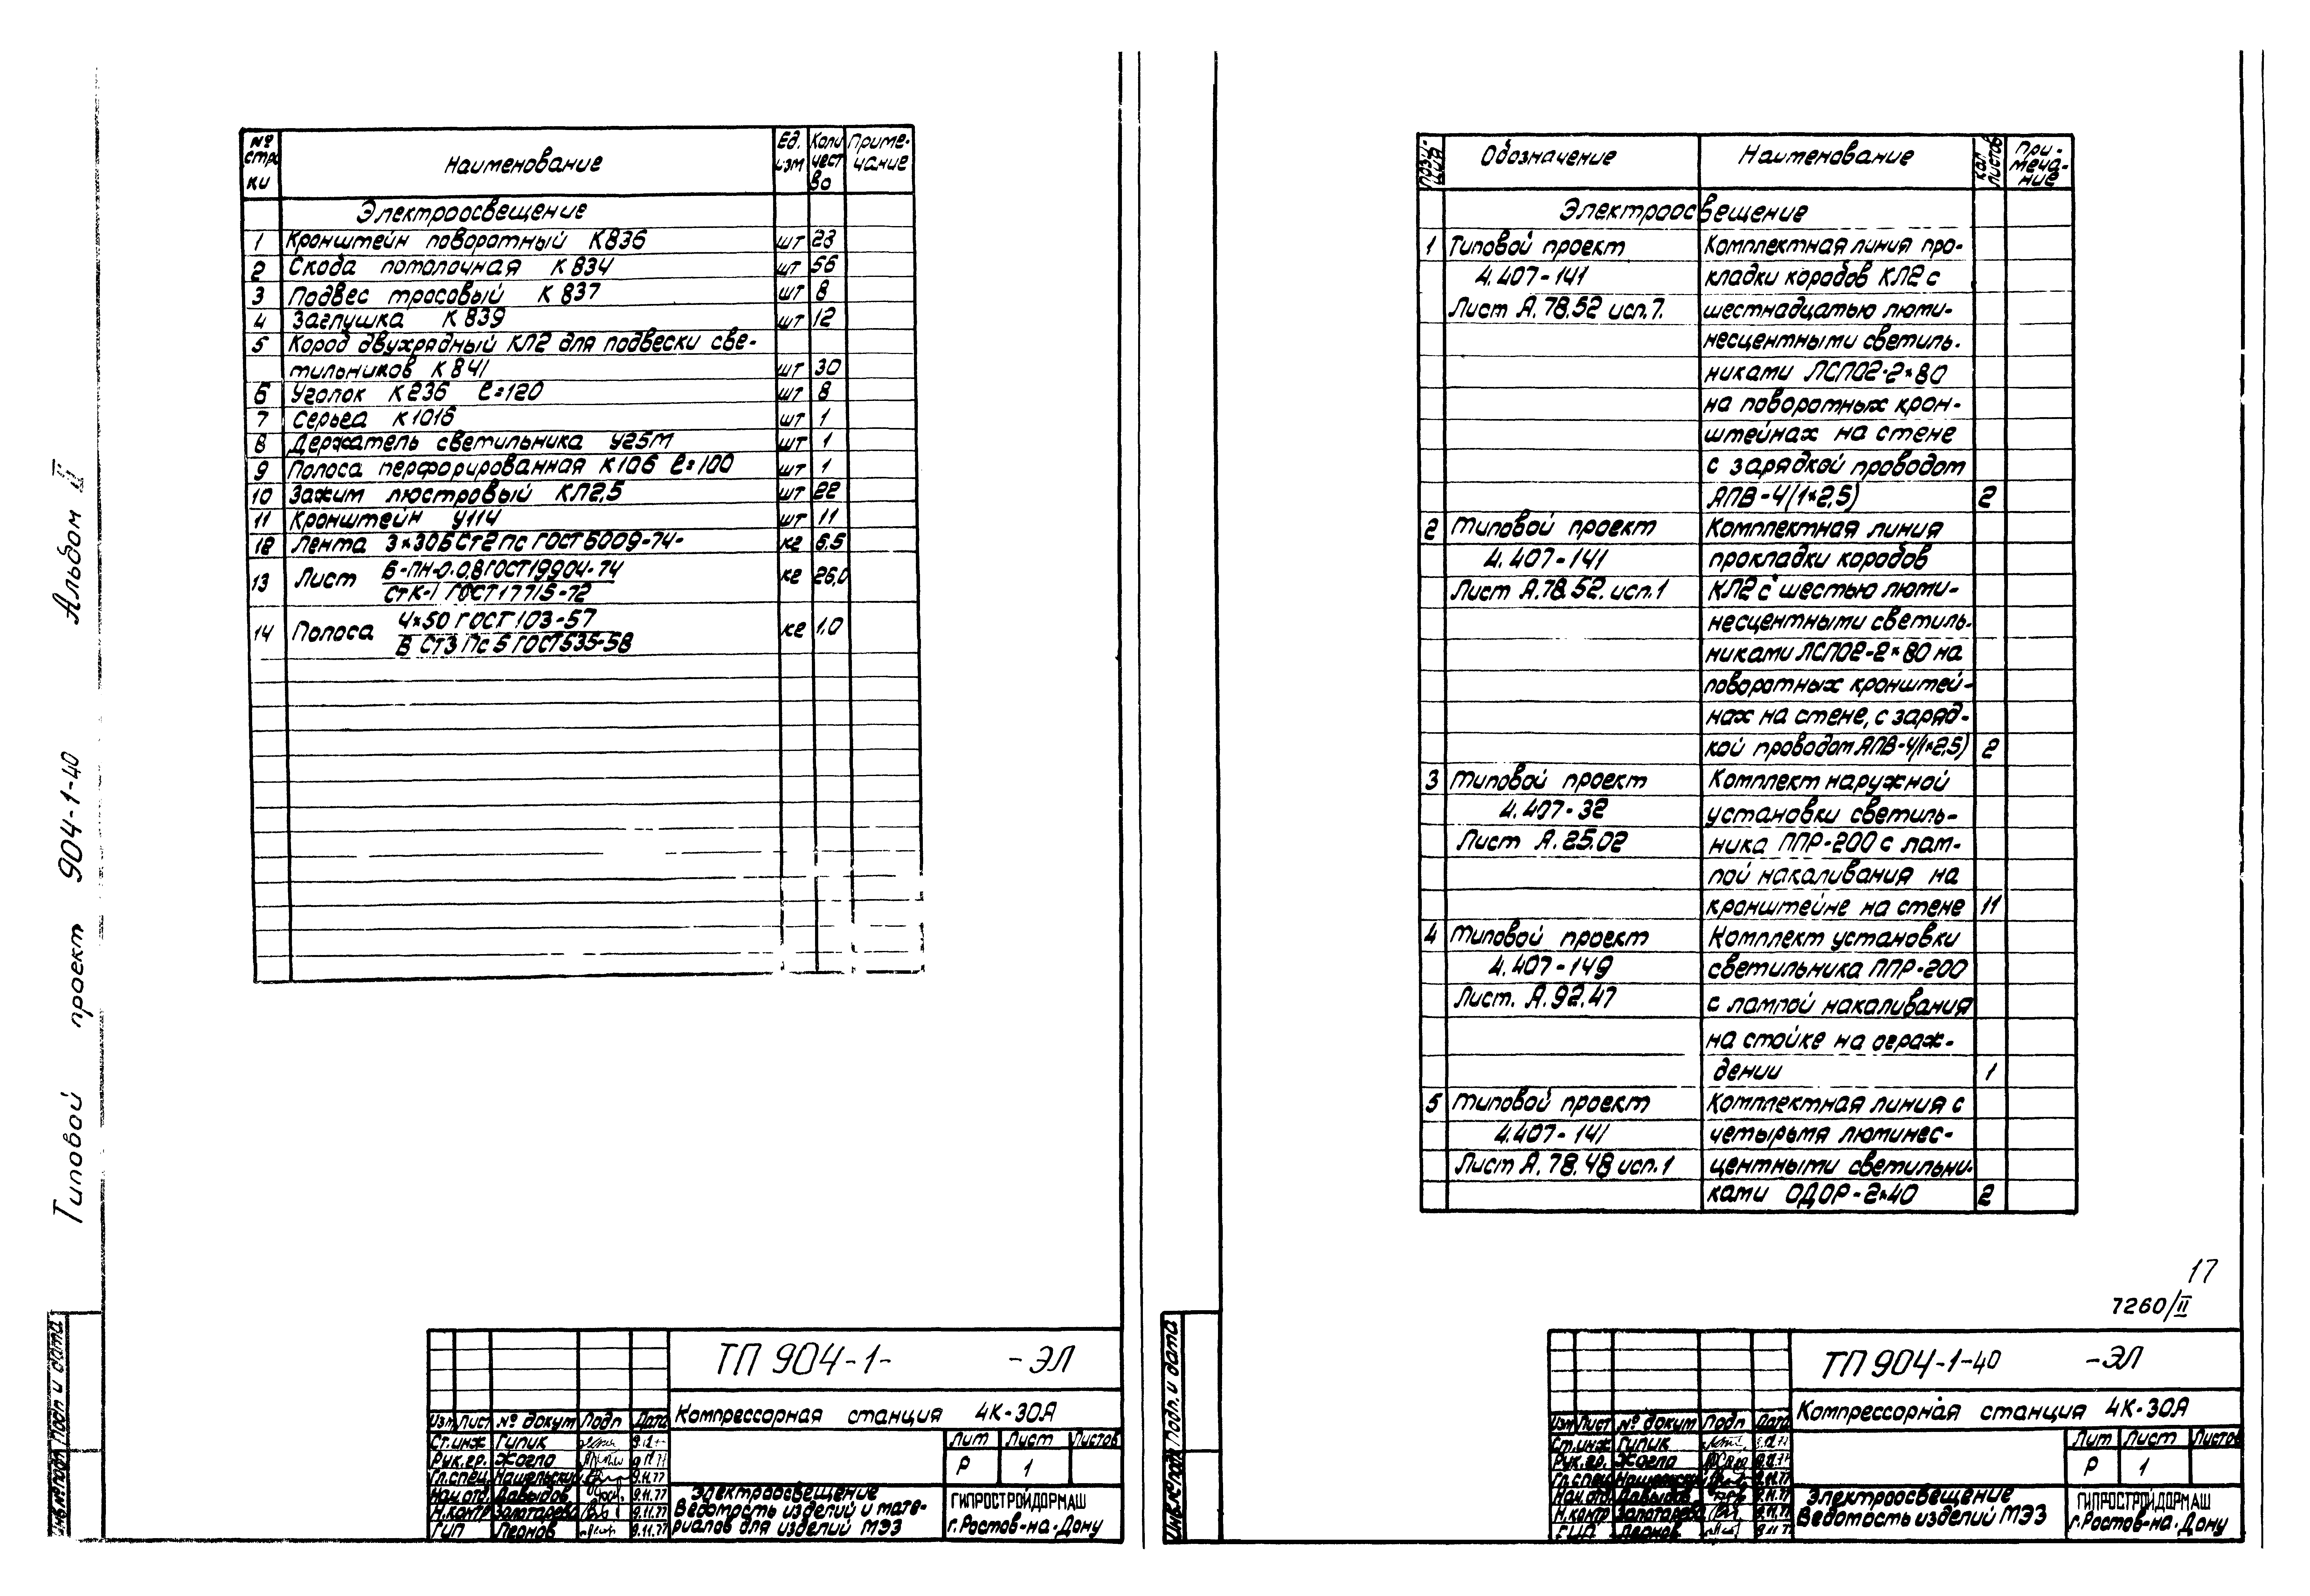 Типовой проект 904-1-40 Альбом II
№ стро ки
Наименование
Ед. изм
Коли чест во
Приме- чание
Электроосвещение
1 Кронштейн поворотный К836 шт 23
2 Скоба потолочная К 834 шт 56
3 Подвес тросовый К 837 шт 8
4 Заглушка К 839 шт 12
5 Короб двухрядный КЛ2 для подвески све-
тильников К 841 шт 30
6 Уголок К236 ℓ=120 шт 8
7 Серьга К1016 шт 1
8 Держатель светильника У25М шт 1
9 Полоса перфорированная К106 ℓ=100 шт 1
10 Зажим люстровый КЛ2,5 шт 22
11 Кронштейн У114 шт 11
12 Лента 3×30БСт2пс ГОСТ6009-74- кг 6.5
13 Лист Б-ПН-О.0,8ГОСТ19904-74 кг 26,0
СтК-1 ГОСТ17715-72
14 Полоса 4×50 ГОСТ103-57 кг 1,0
В Ст3 Пс 5 ГОСТ535-58
ТП 904-1- -ЭЛ
Компрессорная станция 4К-30А
Изм Лист № докум Подп Дата
Ст.инж Гипик
Рук.гр. Жогло
Гл.спец. 9.11.77
Нач.отд. Давыдов 9.11.77
Н.контр Золотарева 9.11.77
ГИП Леонов 9.11.77
Лит Лист Листов
Р 1
Электроосвещение
Ведомость изделий и мате-
риалов для изделий МЭЗ
ГИПРОСТРОЙДОРМАШ
г.Ростов-на-Дону
Инв.№подл Подп и дата
пози- ция
Обозначение
Наименование
кол листов
При- меча- ние
Электроосвещение
1 Типовой проект Комплектная линия про-
4.407-141 кладки коробов КЛ2 с
Лист А.78.52 исп.7. шестнадцатью люми-
несцентными светиль-
никами ЛСП02-2×80
на поворотных крон-
штейнах на стене
с зарядкой проводом
АПВ-4(1×2,5) 2
2 Типовой проект Комплектная линия
4.407-141 прокладки коробов
Лист А.78.52. исп.1 КЛ2 с шестью люми-
несцентными светиль-
никами ЛСП02-2×80 на
поворотных кронштей-
нах на стене, с заряд-
кой проводом АПВ-4(1×2,5) 2
3 Типовой проект Комплект наружной
4.407-32 установки светиль-
Лист А.25.02 ника ППР-200 с лам-
пой накаливания на
кронштейне на стене 11
4 Типовой проект Комплект установки
4.407-149 светильника ППР-200
Лист. А.92.47 с лампой накаливания
на стойке на ограж-
дении 1
5 Типовой проект Комплектная линия с
4.407-141 четырьмя люминес-
Лист А.78.48 исп.1 центными светильни-
ками ОДОР-2×40 2
17
7260/II
ТП 904-1-40 -ЭЛ
Компрессорная станция 4К-30А
Изм Лист № докум Подп Дата
Ст.инж Гипик
Рук.гр. Жогло
Гл.спец 9.11.77
Нач.отд Давыдов 9.11.77
Н.контр Золотарева 9.11.77
ГИП Леонов 9.11.77
Лит Лист Листов
Р 1
Электроосвещение
Ведомость изделий МЭЗ
ГИПРОСТРОЙДОРМАШ
г.Ростов-на-Дону
Инв.№подл Подп. и дата